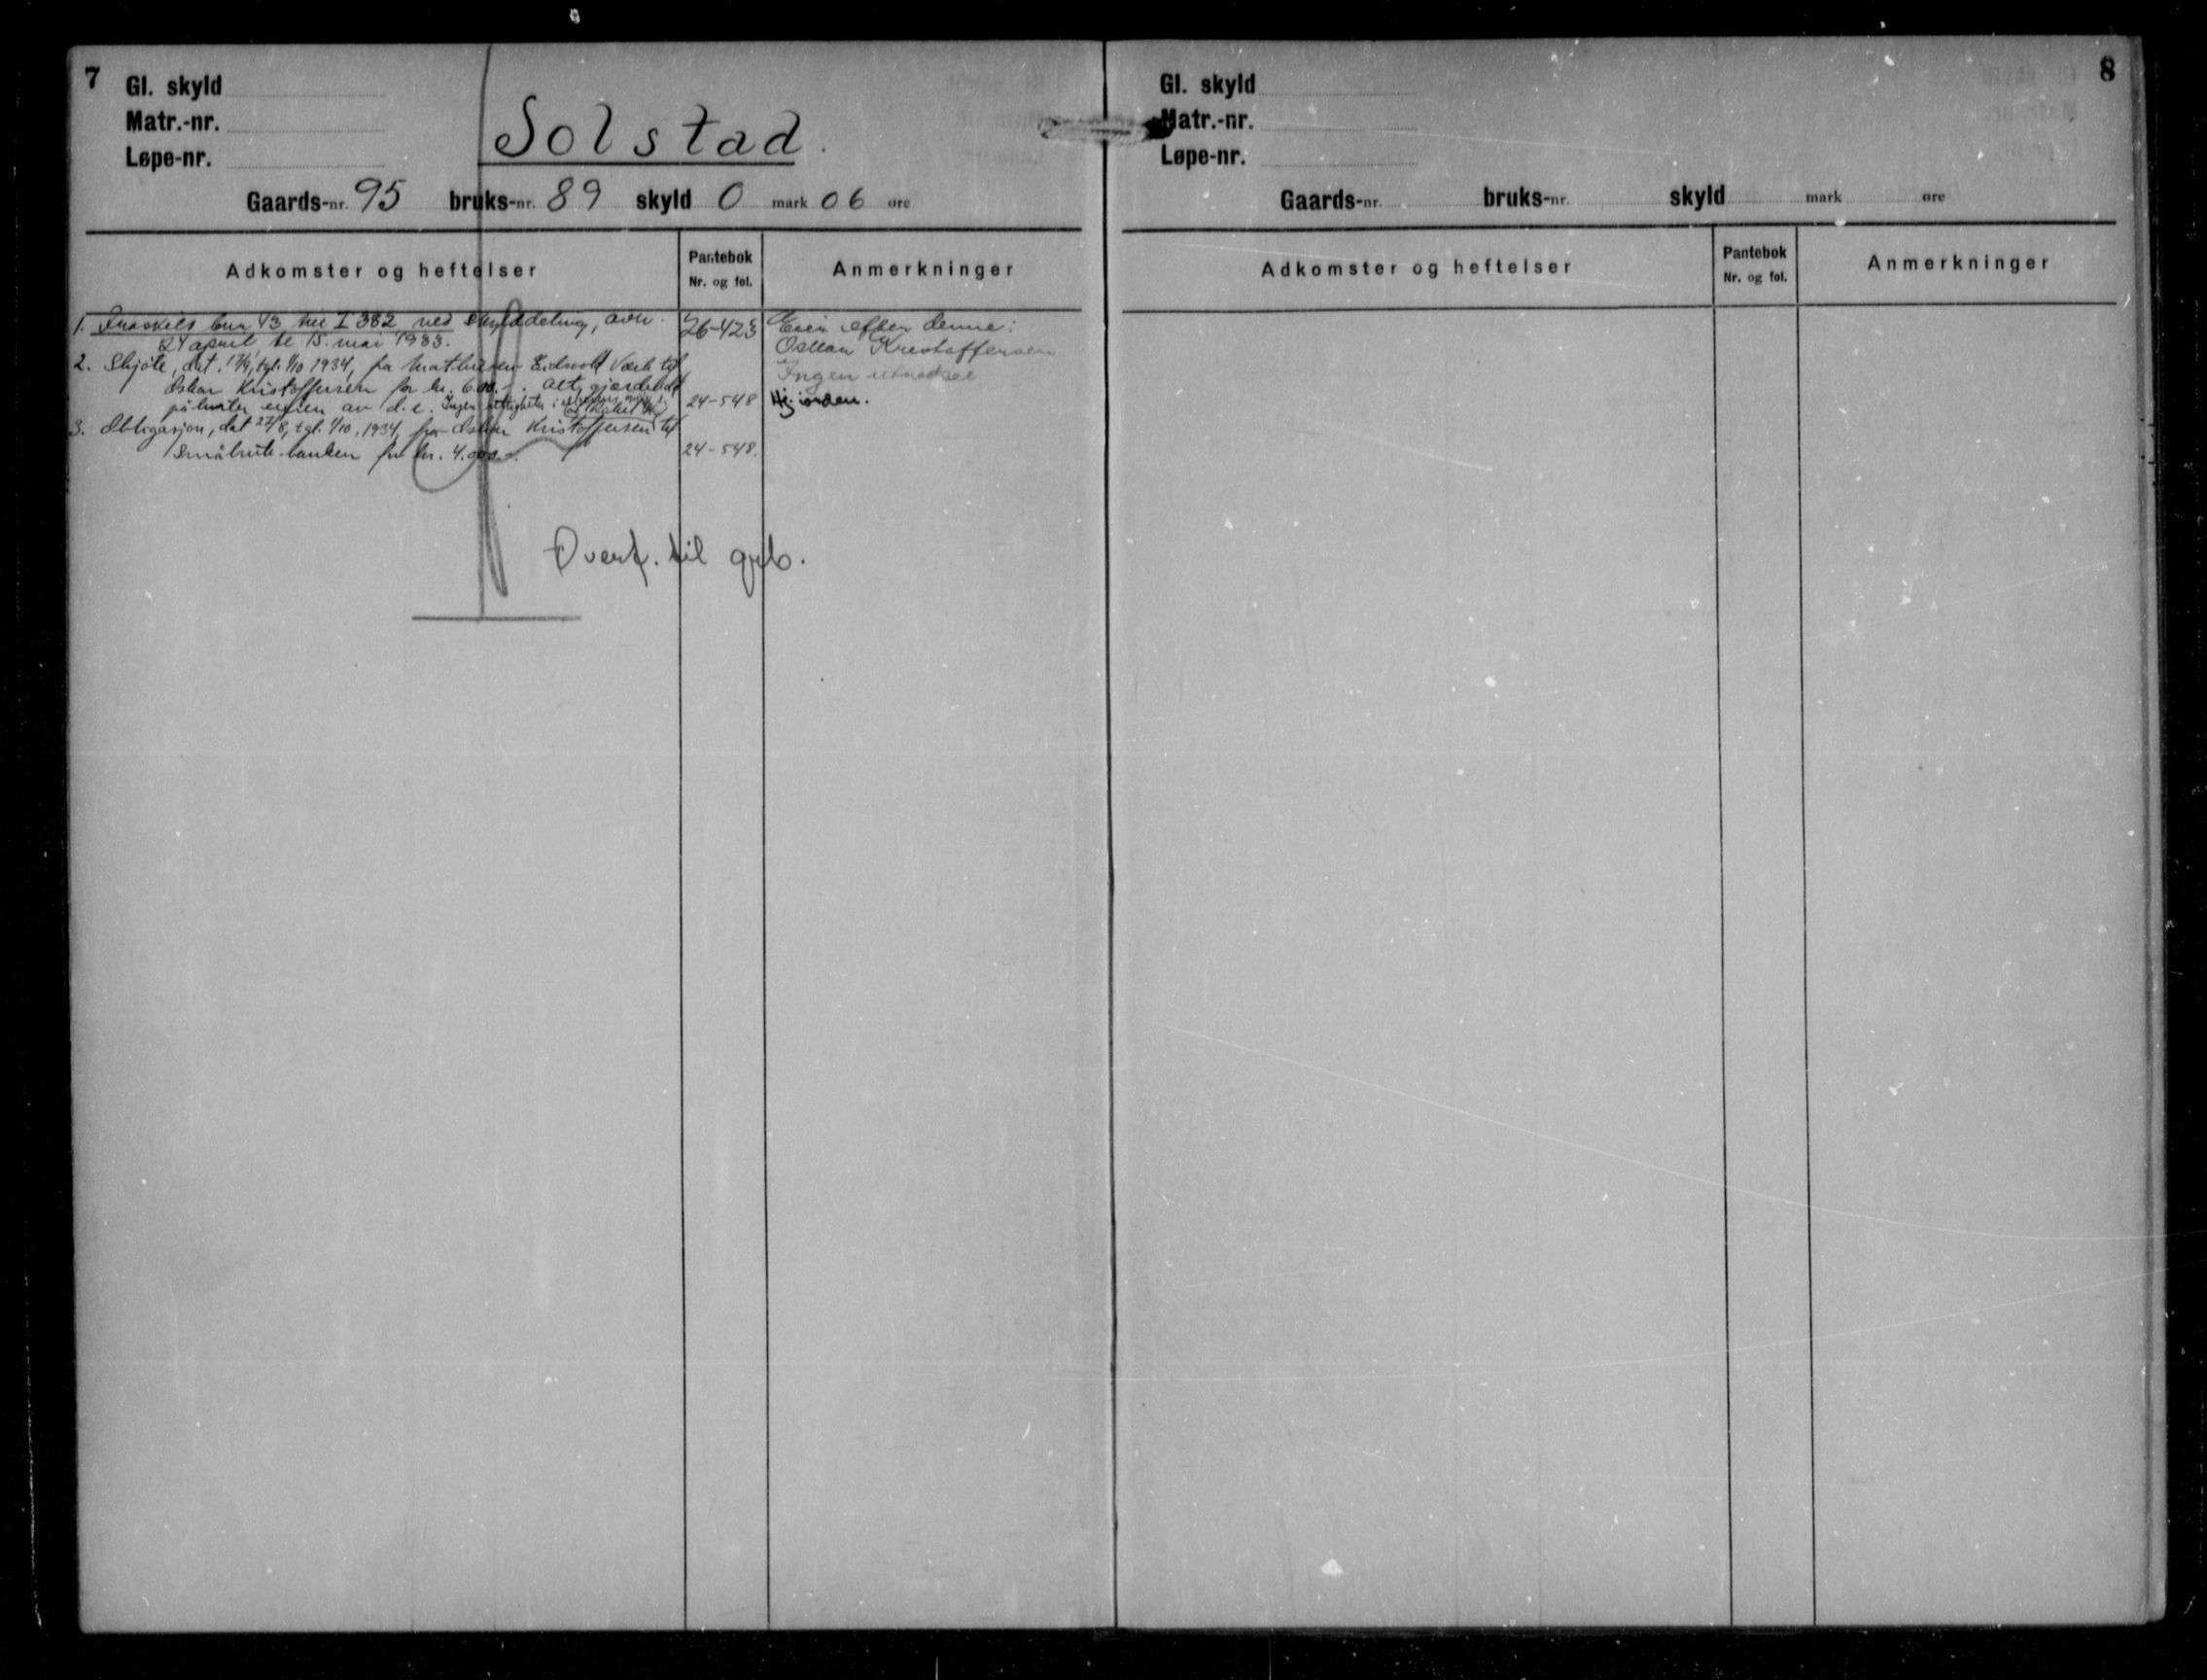 7
Gl. skyld
Matr.-nr.
Løpe-nr.
Solstad.
Gaards-nr. 95 bruks-nr. 89 skyld 0 mark 06 øre
Adkomster og heftelser
Pantebok
Nr. og fol.
Anmerkninger
1. Fraskilt bnr 43 I 382 ved skylddeling, avh.
24 april tl 15. mai 1933.
26-423
Eier efter denne:
Oskar Kristoffersen
Ingen
2. Skjøte, dat. tgl. 1/10 1934, fra Mathiesen Eidsvold Værk til
Oskar Kristoffersen for kr. 600.-. Alt gjerdehold
påhviler eieren av d.e. Ingen rettigheter i
24-548
Hj. i orden.
3. Obligasjon, dat 27/8, tgl. 1/10. 1934, fra Oskar Kristoffersen til
Småbruk-banken for kr. 4.000.-.
24-548.
Overf. til grb.
8
Gl. skyld
Matr.-nr.
Løpe-nr.
Gaards-nr. bruks-nr. skyld mark øre
Adkomster og heftelser
Pantebok
Nr. og fol.
Anmerkninger